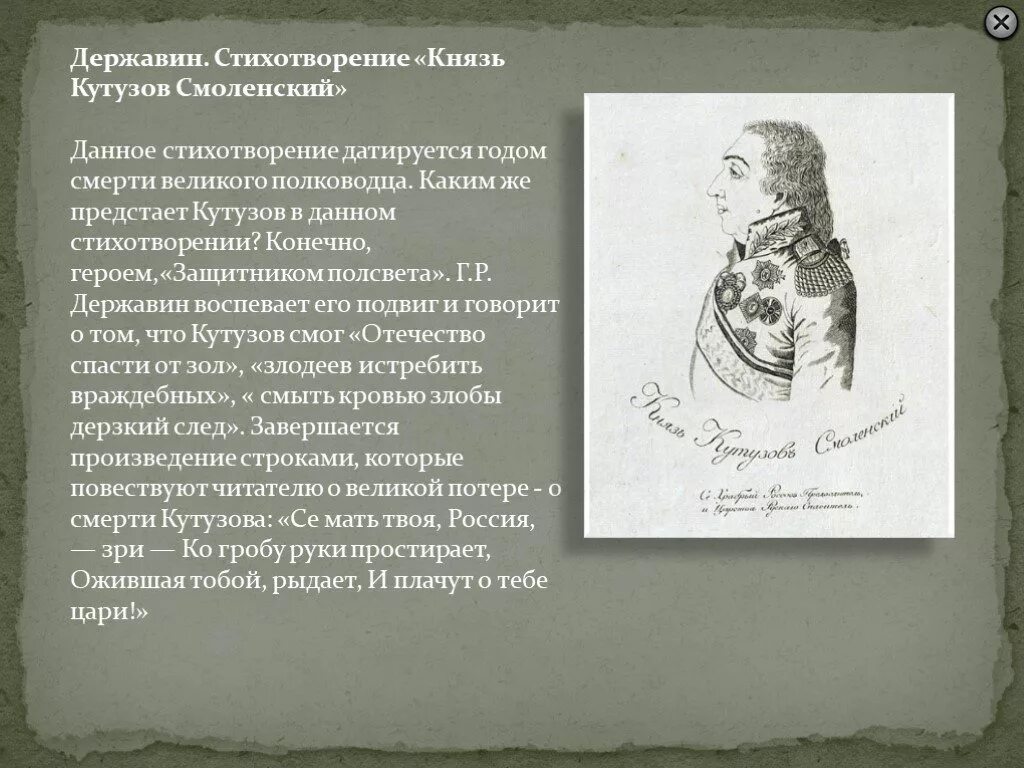 Державин. Стихотворение «Князь
Кутузов Смоленский»
Данное стихотворение датируется годом
смерти великого полководца. Каким же
предстает Кутузов в данном
стихотворении? Конечно,
героем,«Защитником полсвета». Г.Р.
Державин воспевает его подвиг и говорит
о том, что Кутузов смог «Отечество
спасти от зол», «злодеев истребить
враждебных», « смыть кровью злобы
дерзкий след». Завершается
произведение строками, которые
повествуют читателю о великой потере - о
смерти Кутузова: «Се мать твоя, Россия,
— зри — Ко гробу руки простирает,
Ожившая тобой, рыдает, И плачут о тебе
цари!»
Князь Кутузовъ Смоленский
Се Храбрый Россовъ
и Спаситель.